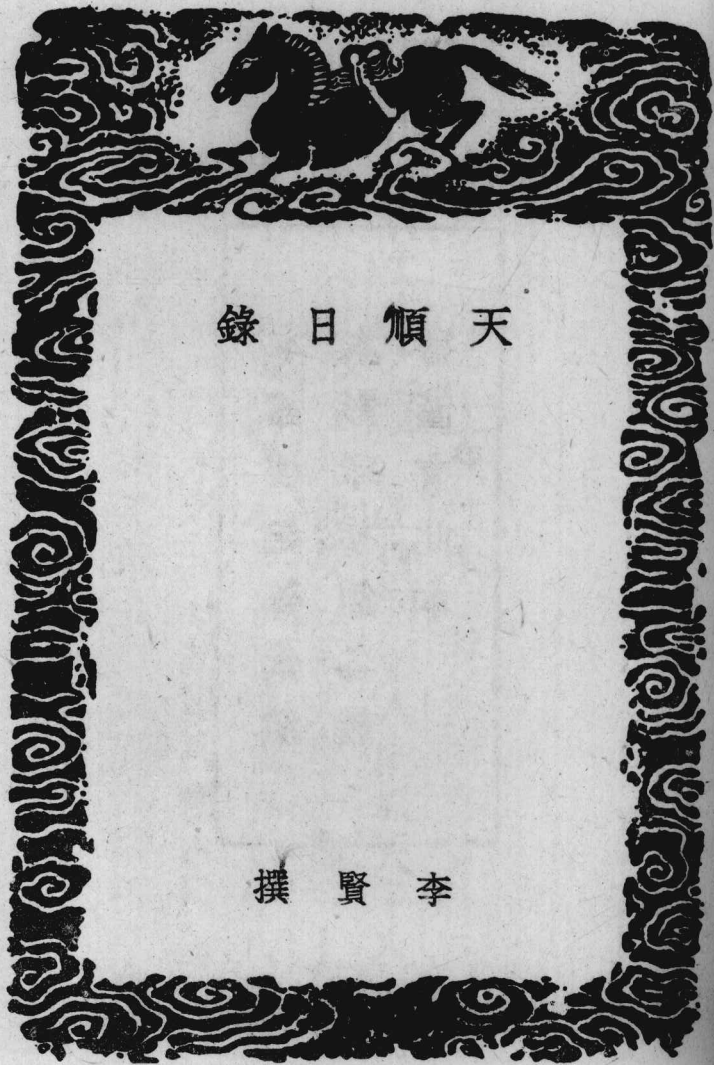 天順日錄
李賢撰